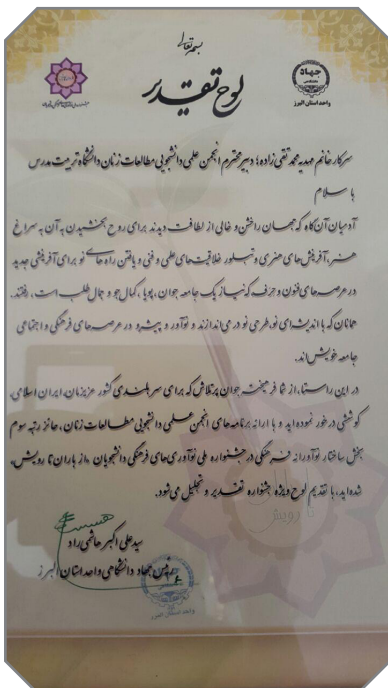 بسمه تعالی
لوح تقدیر
جهاد
دانشگاهی
واحد استان البرز
سرکار خانم مهدیه محمد تقی زاده؛ دبیر محترم انجمن علمی دانشجویی مطالعات زنان دانشگاه تربیت مدرس
با سلام
آدمیان آن گاه که جهان را خشن و خالی از لطافت دیدند برای روح بخشیدن به آن به سراغ
هنر، آفرینش‌های هنری و تبلور خلاقیت‌های علمی و فنی و یافتن راه‌های نو برای آفرینشی جدید
در عرصه‌های فنون و حرف که نیاز یک جامعه جوان، پویا، کمال جو و جمال طلب است، رفتند.
همانان که با اندیشه‌ای نو، طرحی نو در می‌اندازند و نوآور و پیشرو در عرصه‌های فرهنگی و اجتماعی
جامعه خویش‌اند.
در این راستا، از شما فرهیخته جوان پرتلاش که برای سربلندی کشور عزیزمان، ایران اسلامی،
کوششی در خور نموده‌اید و با ارائه برنامه‌های انجمن علمی دانشجویی مطالعات زنان، حائز رتبه سوم
بخش ساختار نوآورانه فرهنگی در جشنواره ملی نوآوری‌های فرهنگی دانشجویان «از باران تا رویش»
شده‌اید، با تقدیم لوح ویژه جشنواره تقدیر و تجلیل می‌شود.
سید علی اکبر هاشمی راد
رئیس جهاد دانشگاهی واحد استان البرز
واحد استان البرز
تا رویش